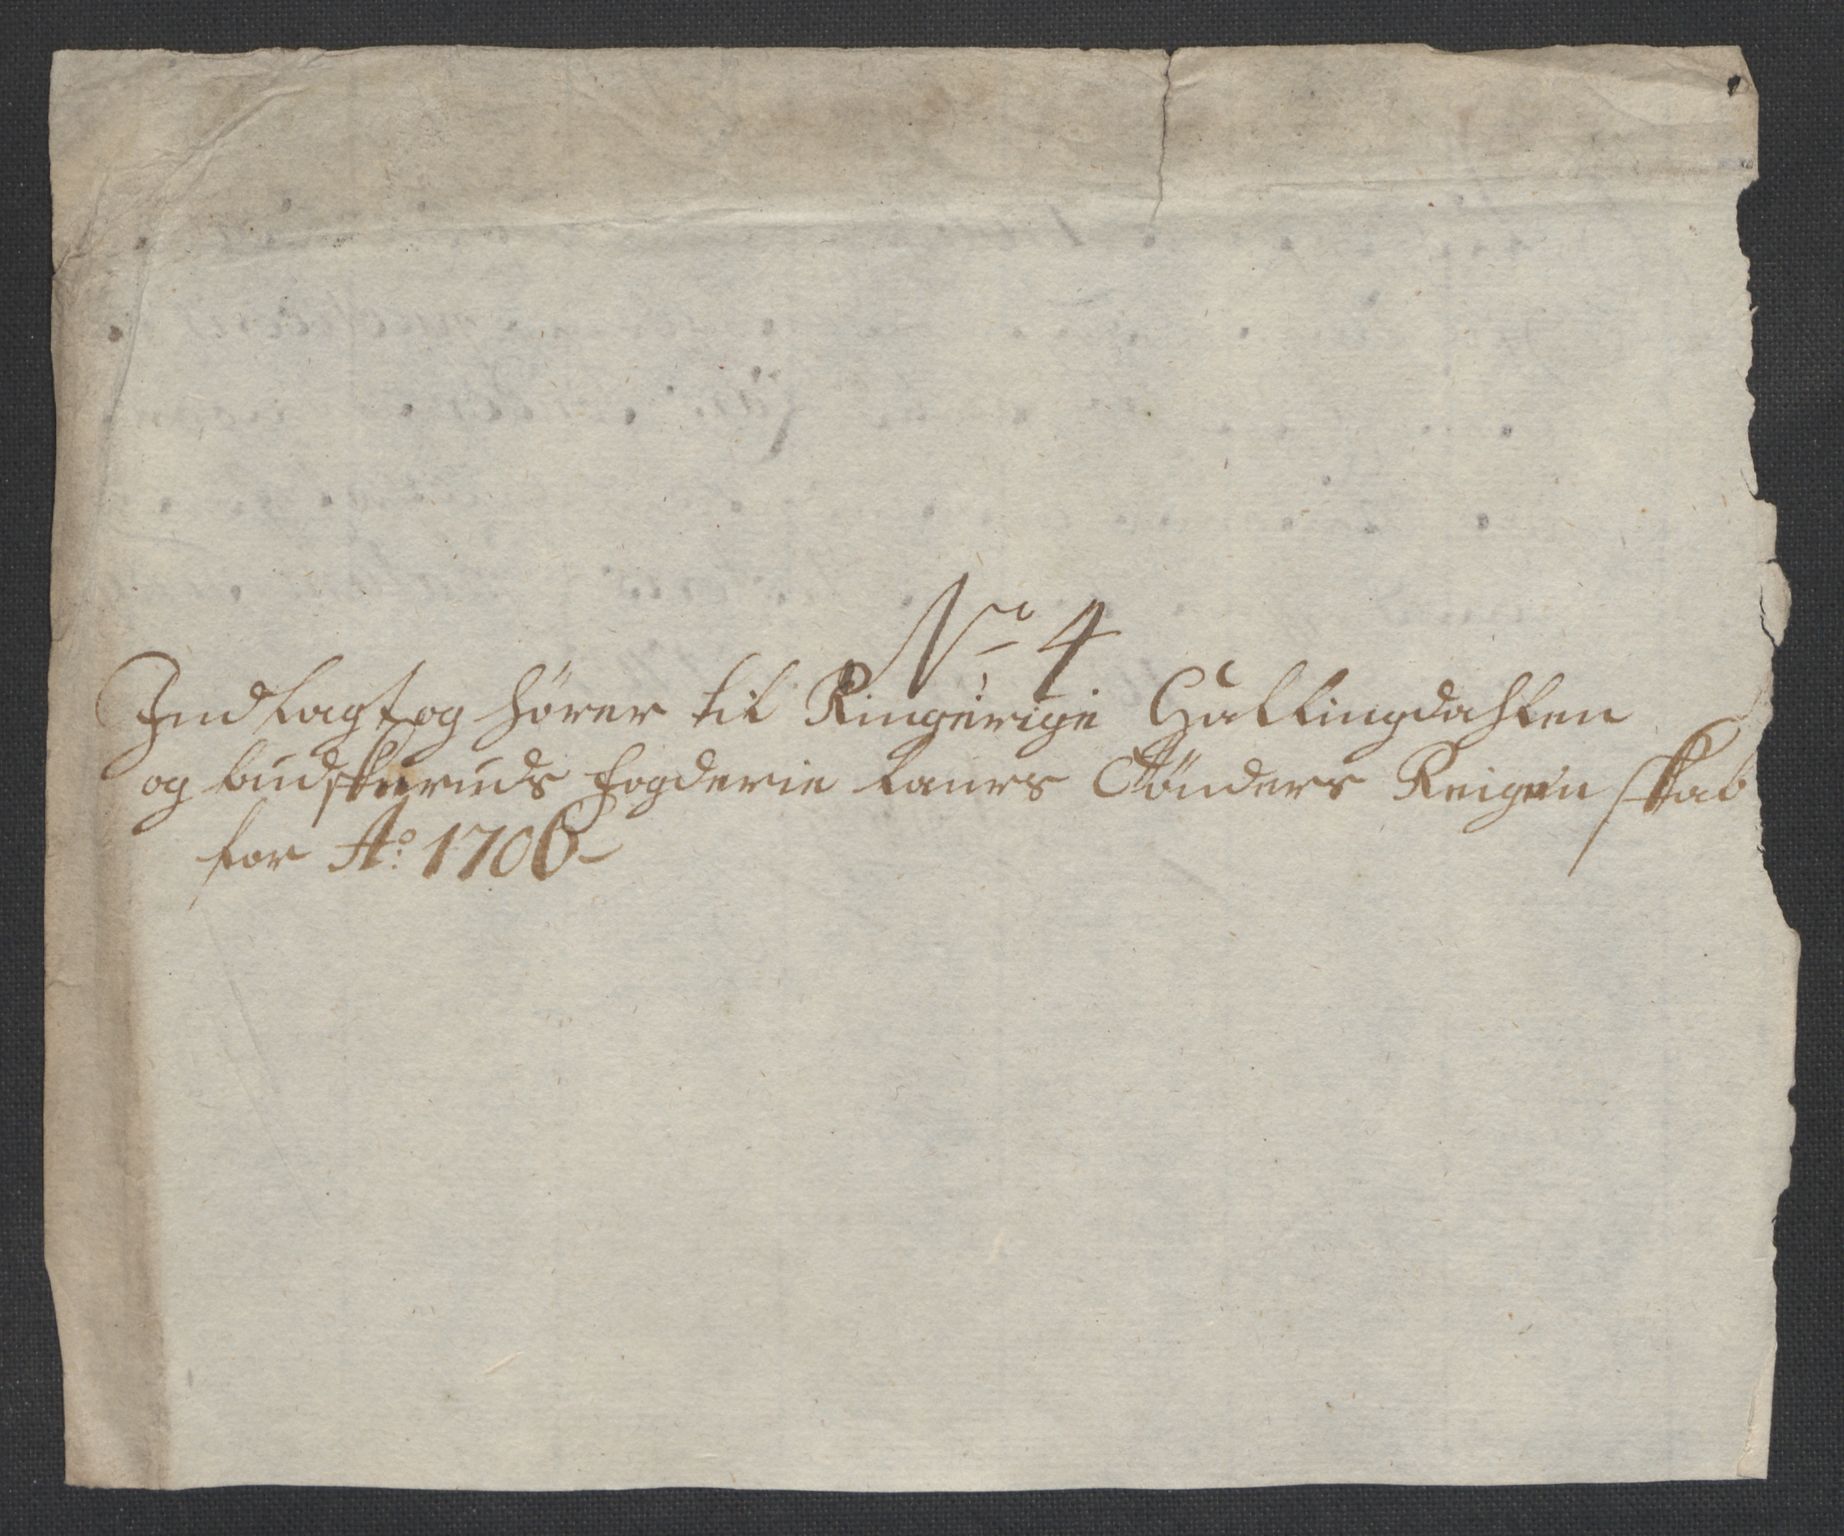 No 4
Indlagt og hører til Ringerige Hallingdahlen
og budskeruds fogderie Laurs Tønders Reigenskab
for Ao: 1706